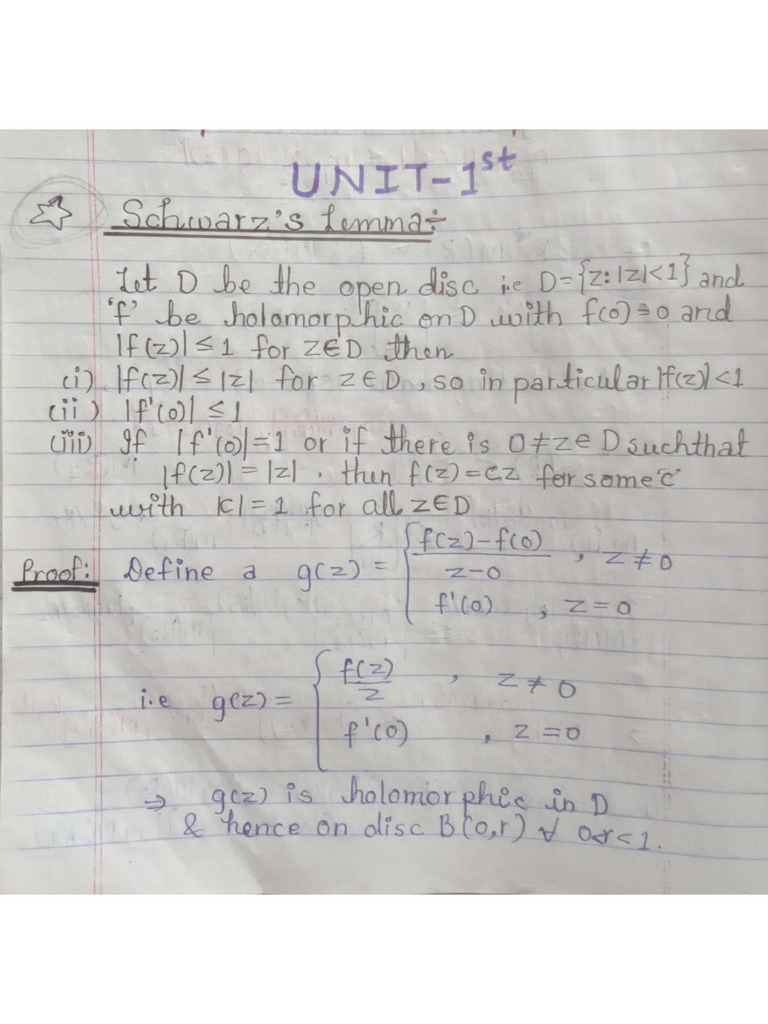 UNIT-1st
Schwarz's Lemma÷
Let D be the open disc i.e D={z:|z|<1} and
'f' be holomorphic on D with f(0)=0 and
|f(z)|≤1 for z∈D then
(i) |f(z)|≤|z| for z∈D, so in particular |f(z)|<1
(ii) |f'(0)|≤1
(iii) If |f'(0)|=1 or if there is 0≠z∈D such that
|f(z)|=|z|. then f(z)=cz for some 'c'
with |c|=1 for all z∈D
Proof: Define a g(z) = { f(z)-f(0) / z-0 , z≠0
f'(0) , z=0
i.e g(z) = { f(z) / z , z≠0
f'(0) , z=0
⇒ g(z) is holomorphic in D
& hence on disc B(0,r) ∀ 0<r<1.